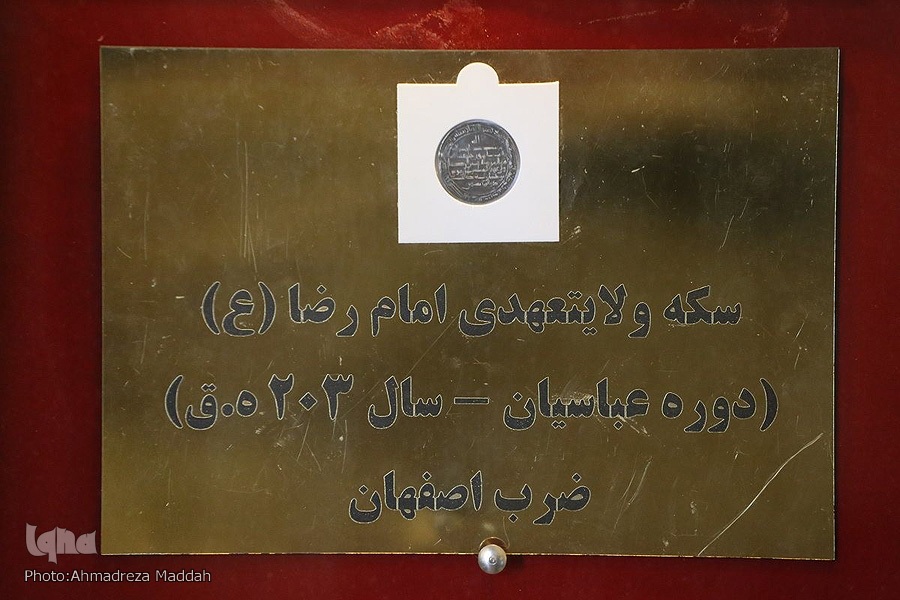 سکه ولایتعهدی امام رضا (ع)
(دوره عباسیان – سال ۲۰۳ ه.ق)
ضرب اصفهان
Iqna
Photo:Ahmadreza Maddah